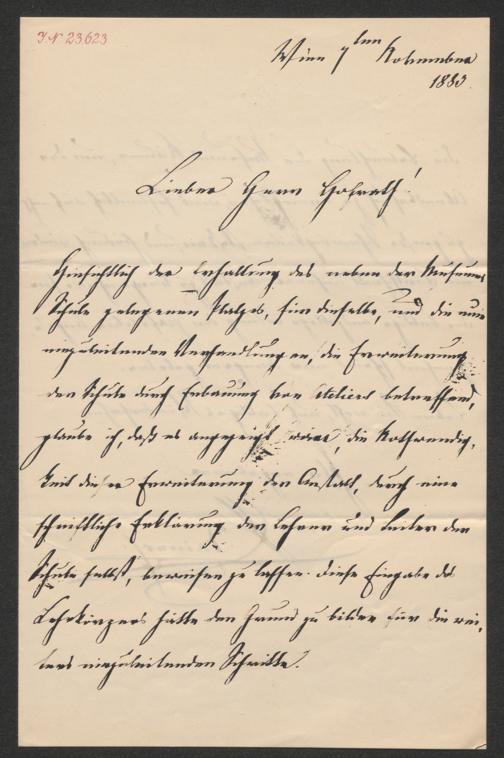 J.N. 23623
Wien 7ten November
1883.
Lieber Herr Hofrath!
Hinsichtlich der Erhaltung des neben der Museums
Schule gelegenen Platzes, für dieselbe, und die nun
einzuleitenden Verhandlungen, die Erweiterung
der Schule durch Erbauung von Ateliers betreffend,
glaube ich, daß es angezeigt wäre, die Nothwendig-
keit dieser Erweiterung der Anstalt, durch eine
schriftliche Erklärung der Lehrer und Leiter der
Schule selbst, beweisen zu lassen. Diese Eingabe des
Lehrkörpers hätte den Grund zu bilden für die wei-
ters einzuleitenden Schritte.